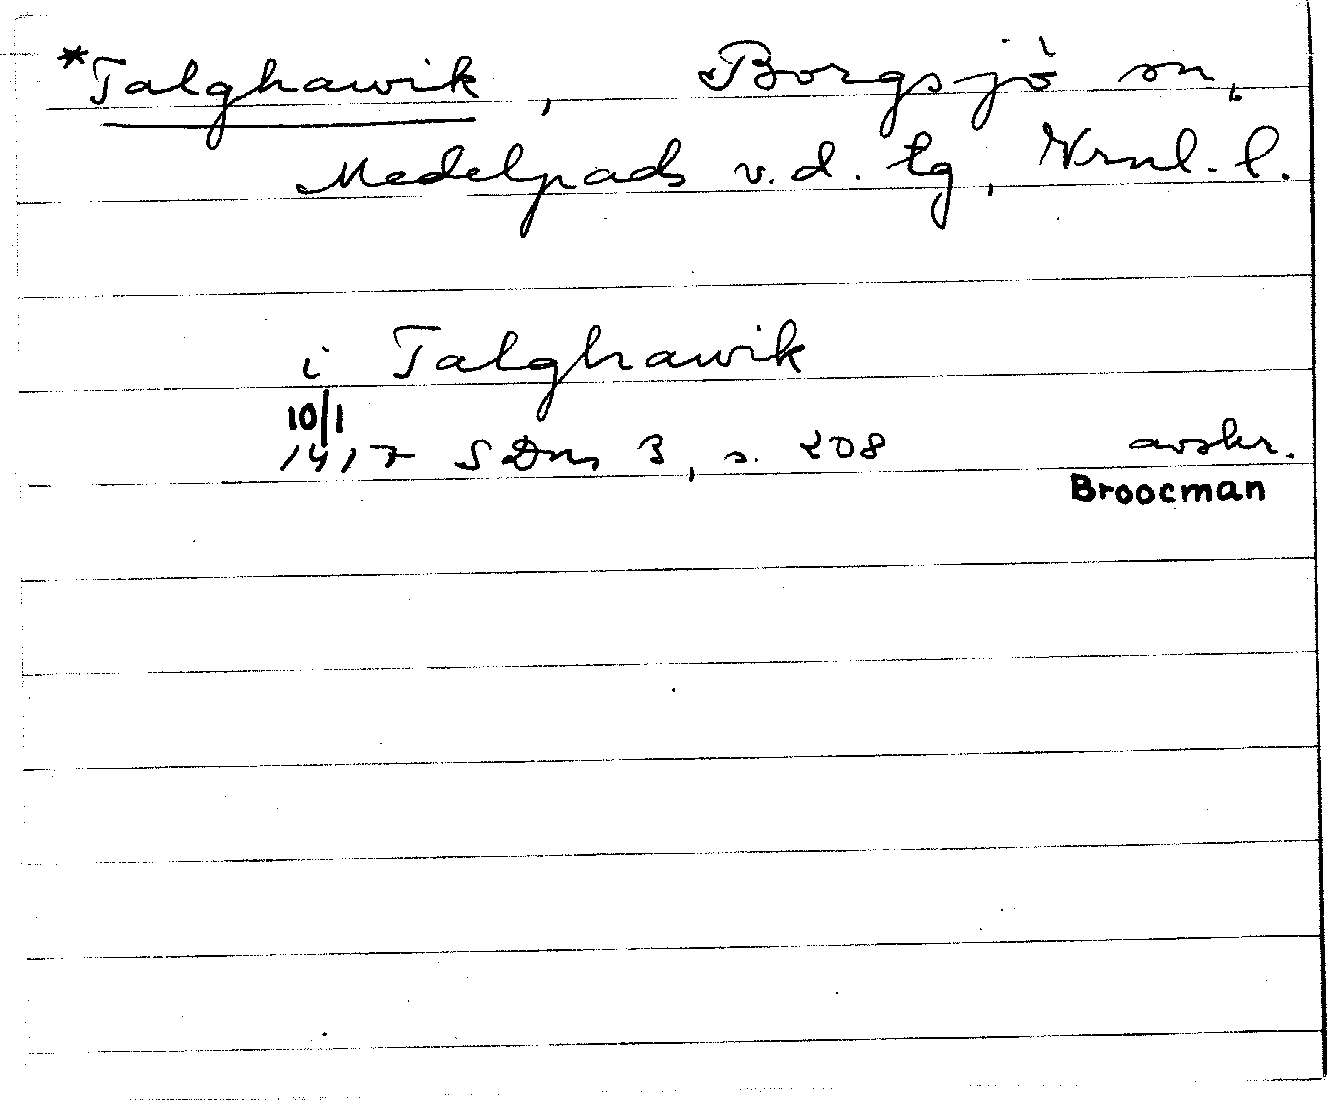 *Talghawik, Borgsjö sn,
Medelpads v.d. tg, Vrnl. l.
i Talghawik
10/1
1417 SDns 3, s. 208 avskr.
Broocman